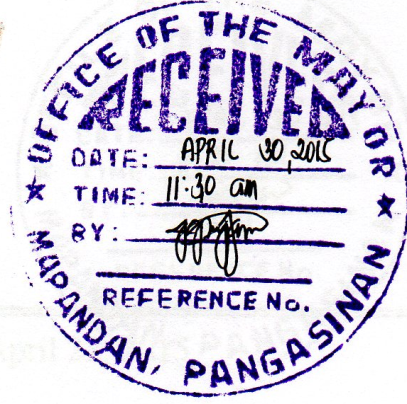 OFFICE OF THE MAYOR
RECEIVED
DATE: APRIL 30, 2015
TIME: 11:30 am
BY:
REFERENCE No.
MAPANDAN, PANGASINAN